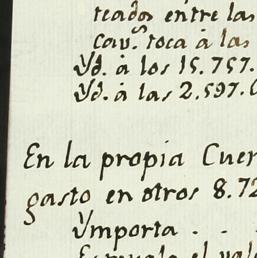 teados entre las
cav.s toca à las
Yd. à los 15.757.
Yd. à las 2.597.
En la propia Cuer
gasto en otros 8.72
Ymporta . . .